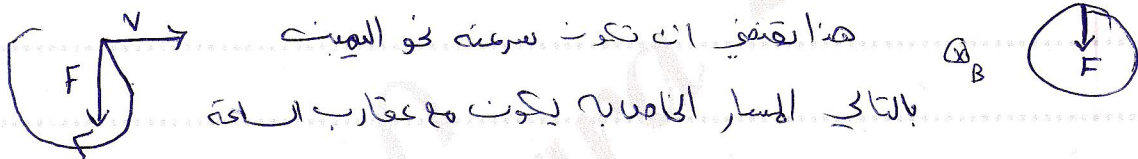 هذا يقتضي ان تكون سرعته نحو اليمين
بالتالي المسار الخاص به يكون مع عقارب الساعة
V
F
B
F